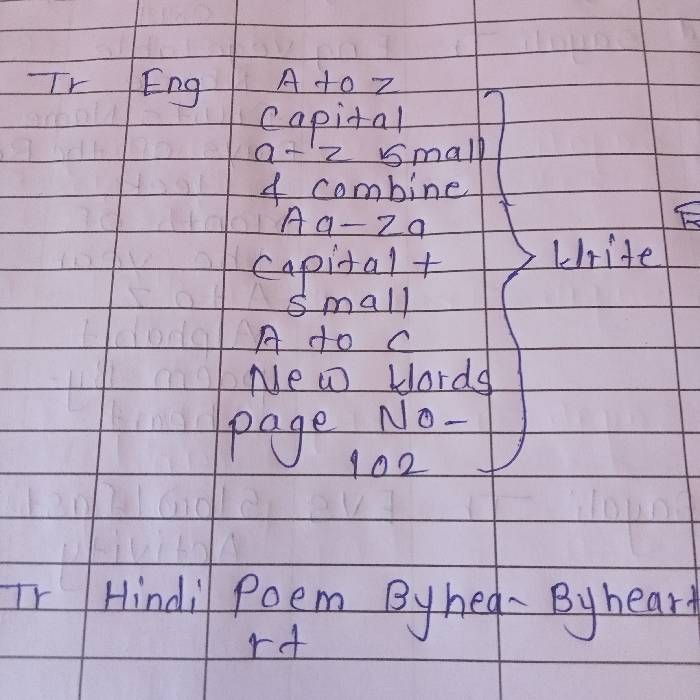 Tr Eng A to z
Capital
a-z small
& combine
Aa-Za
Capital + Write
small
A to C
New Words
page No-
102
Tr Hindi Poem Byhea- Byheart
rt